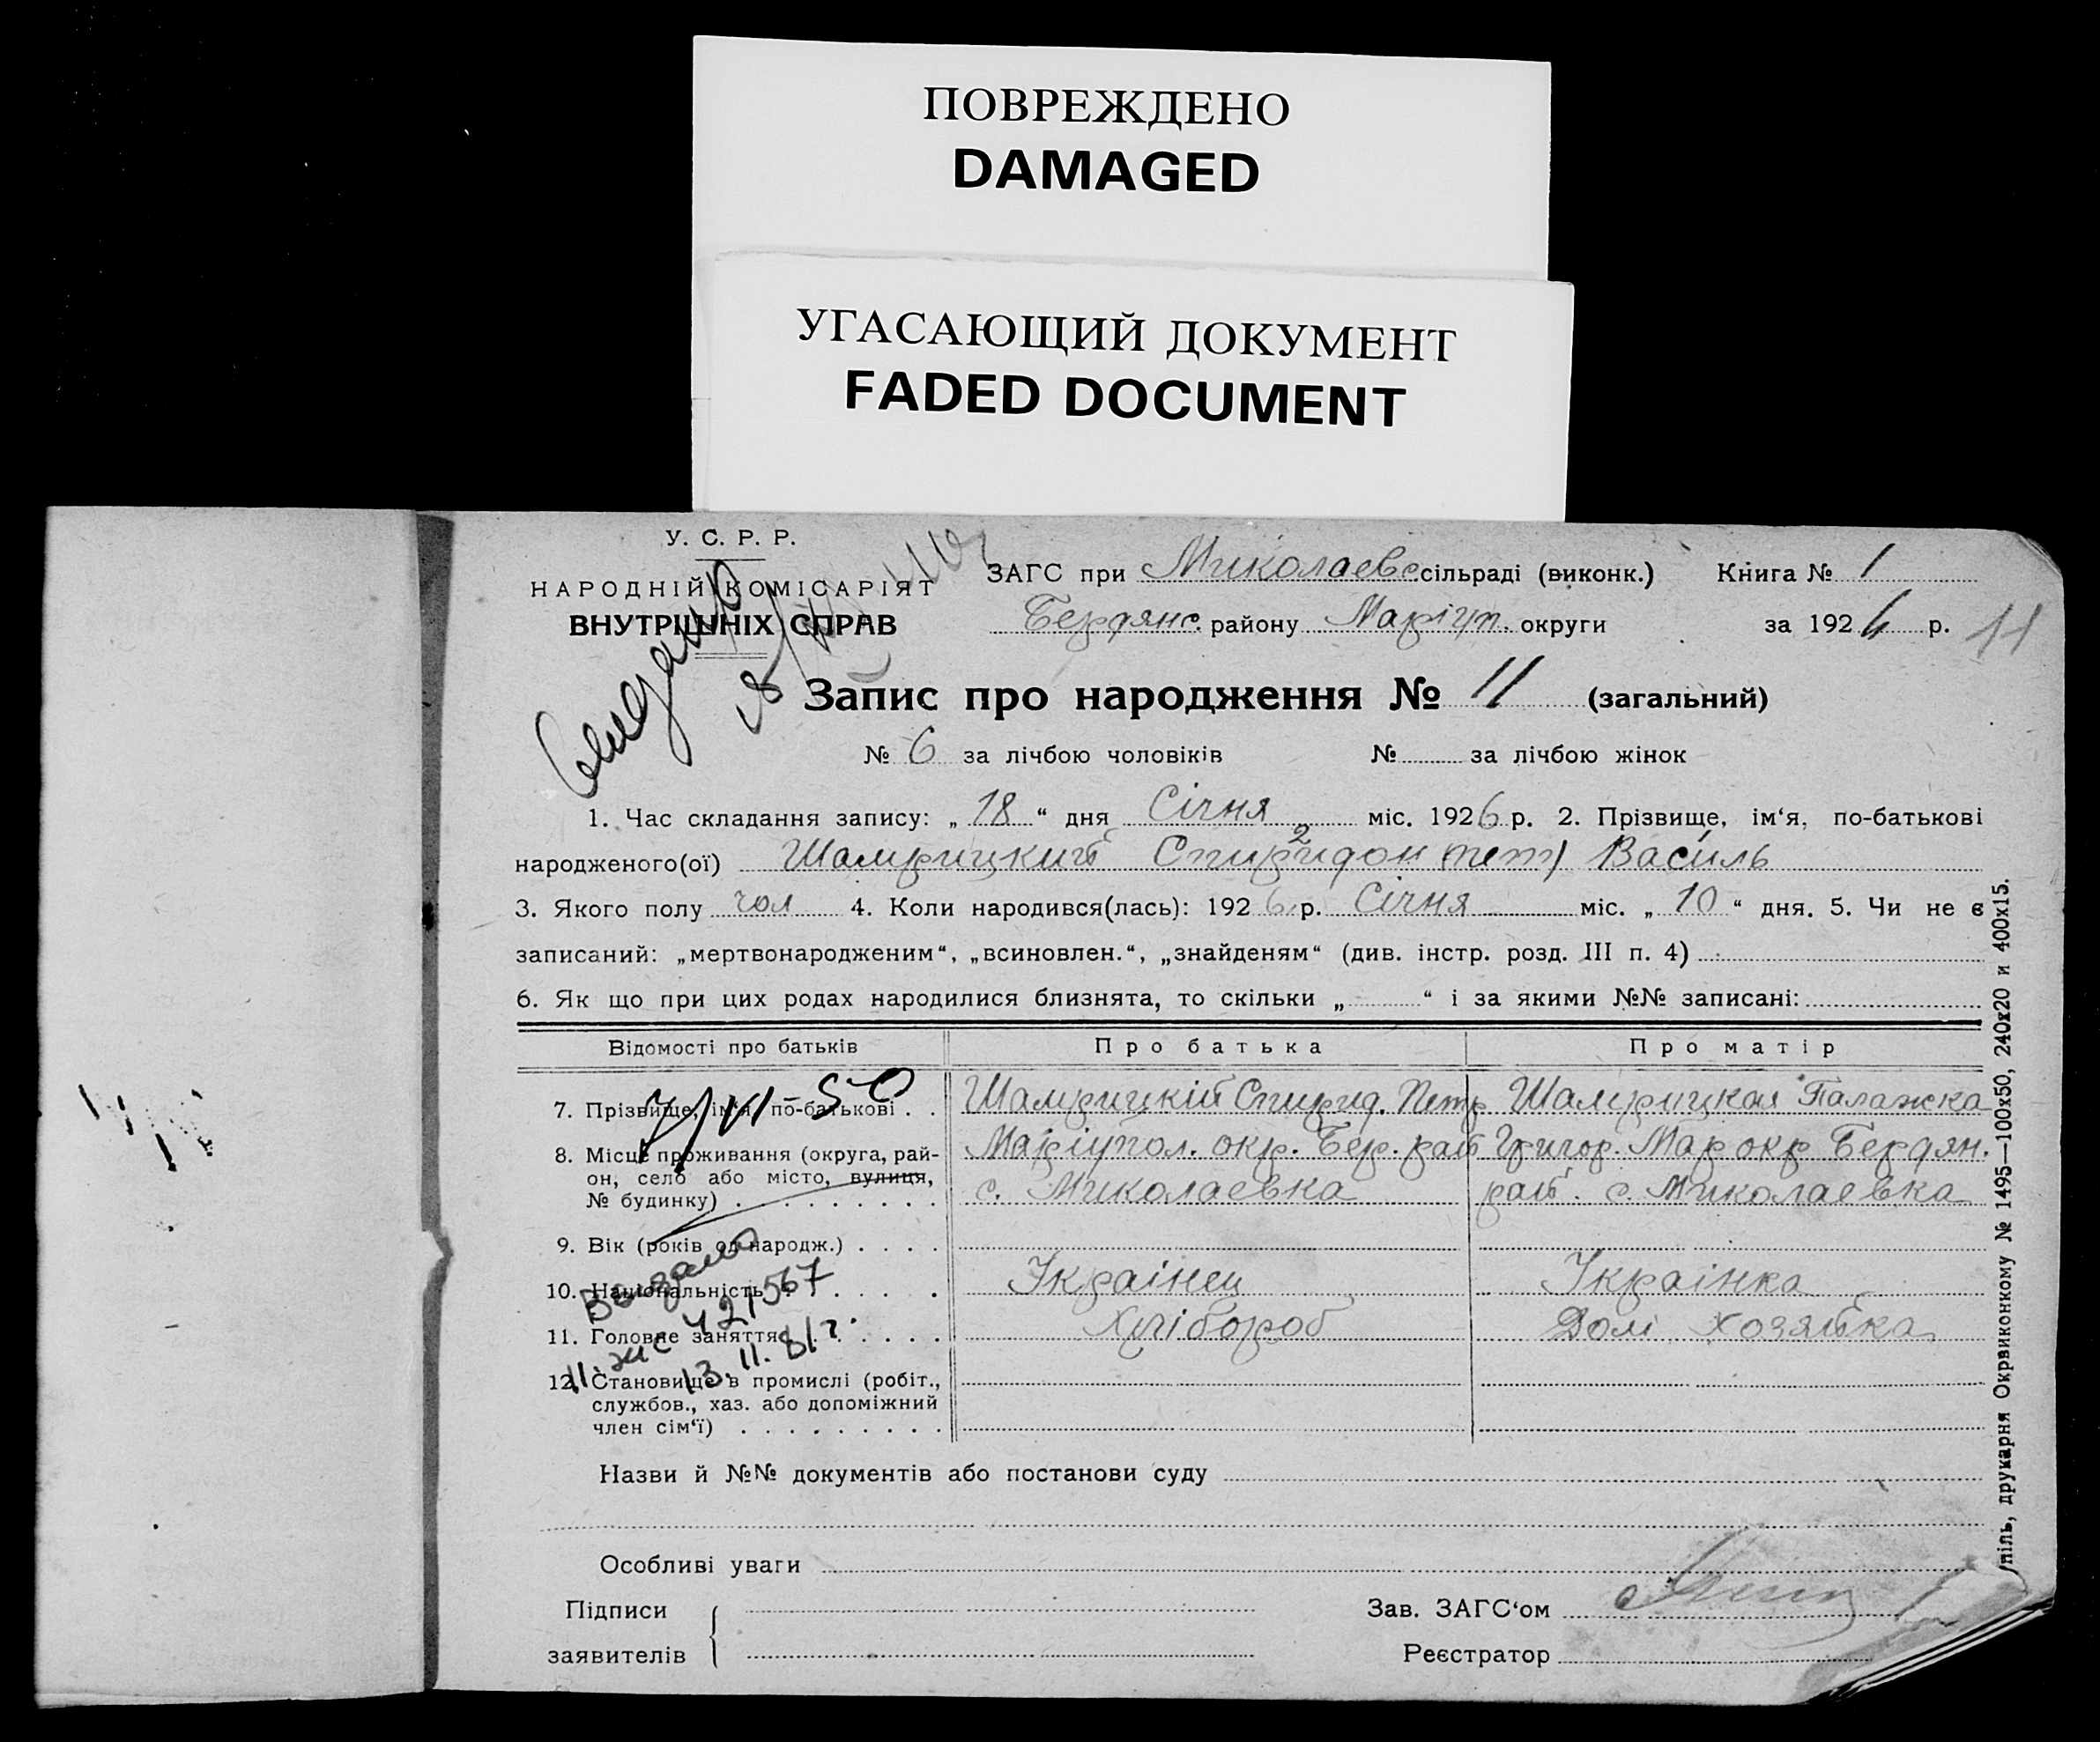 ПОВРЕЖДЕНО
DAMAGED
УГАСАЮЩИЙ ДОКУМЕНТ
FADED DOCUMENT
У. С. Р. Р.
НАРОДНІЙ КОМІСАРІЯТ
ВНУТРІШНІХ СПРАВ
ЗАГС при Миколаевс. сільраді (виконк.) Книга № 1
Бердянс. району Маріуп. округи за 1926 р. 11
Запис про народження № 11 (загальний)
№ 6 за лічбою чоловіків № за лічбою жінок
1. Час складання запису: „18“ дня Січня міс. 1926 р. 2. Прізвище, ім‘я, по-батькові
народженого(ої) Шамрицкий Спиридон Васіль
3. Якого полу чол 4. Коли народився(лась): 1926 р. Січня міс. „10“ дня. 5. Чи не є
записаний: „мертвонародженим“, „всиновлен.“, „знайденям“ (див. інстр. розд. III п. 4)
6. Як що при цих родах народилися близнята, то скільки „ “ і за якими №№ записані:
Відомості про батьків Про батька Про матір
7. Прізвище, ім‘я, по-батькові . . Шамрицкій Спирид. Петр Шамрицкая Палажка
8. Місце проживання (округа, рай- Маріупол. окр. Бер. рай Григор. Мар окр Бердян.
он, село або місто, вулиця, с. Миколаевка рай. с. Миколаевка
№ будинку)
9. Вік (років од народж.) . . . .
10. Національність Украінец Украінка
11. Головне заняття Хлібороб Домі хозяйка
12. Становище в промислі (робіт.,
службов., хаз. або допоміжний
член сім‘ї)
Видано
421567
13. 11. 81г.
Назви й №№ документів або постанови суду
Особливі уваги
Підписи
заявителів
Зав. ЗАГС‘ом
Реєстратор
піль, друкарня Окрвиконкому № 1495—100х50, 240х20 и 400х15.